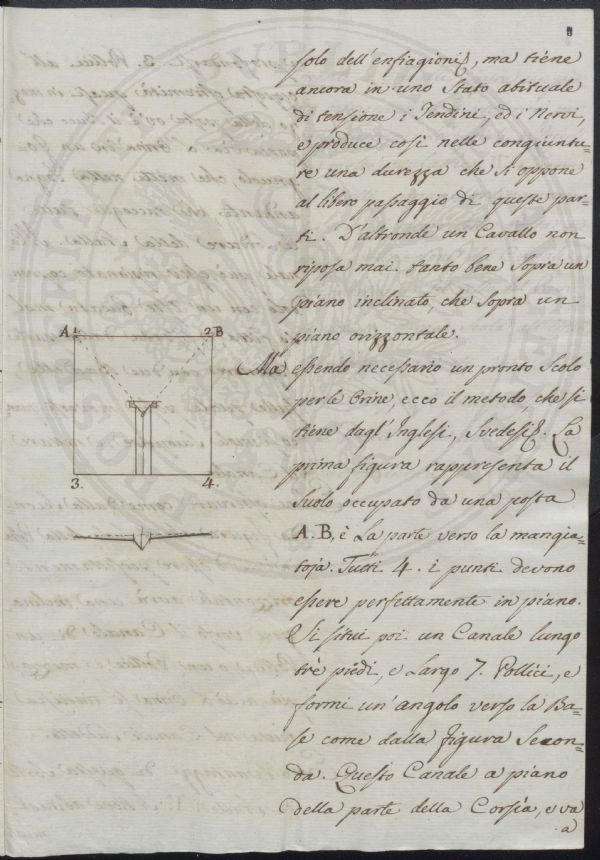 solo dell'enfiagioni, ma tiene
ancora in uno Stato abituale
di tensione i Tendini, ed i Nervi,
e produce così nelle congiuntu=
re una durezza che si oppone
al libero passaggio di queste par=
ti. D'altronde un Cavallo non
riposa mai tanto bene sopra un
piano inclinato, che sopra un
piano orizzontale.
Ma essendo necessario un pronto Scolo
per le Orine, ecco il metodo, che si
tiene dagl'Inglesi, Svedesi &. La
prima figura rappresenta il
Suolo occupato da una posta
A.B, è La parte verso la mangia=
toja. Tutti 4. i punti devono
essere perfettamente in piano.
Si situi poi un Canale lungo
trè piedi, e Largo 7. Pollici, e
formi un'angolo verso la Ba=
se come dalla figura Secon=
da. Questo Canale a piano
della parte della Corsìa, e va
a
A 1 2 B
3. 4.